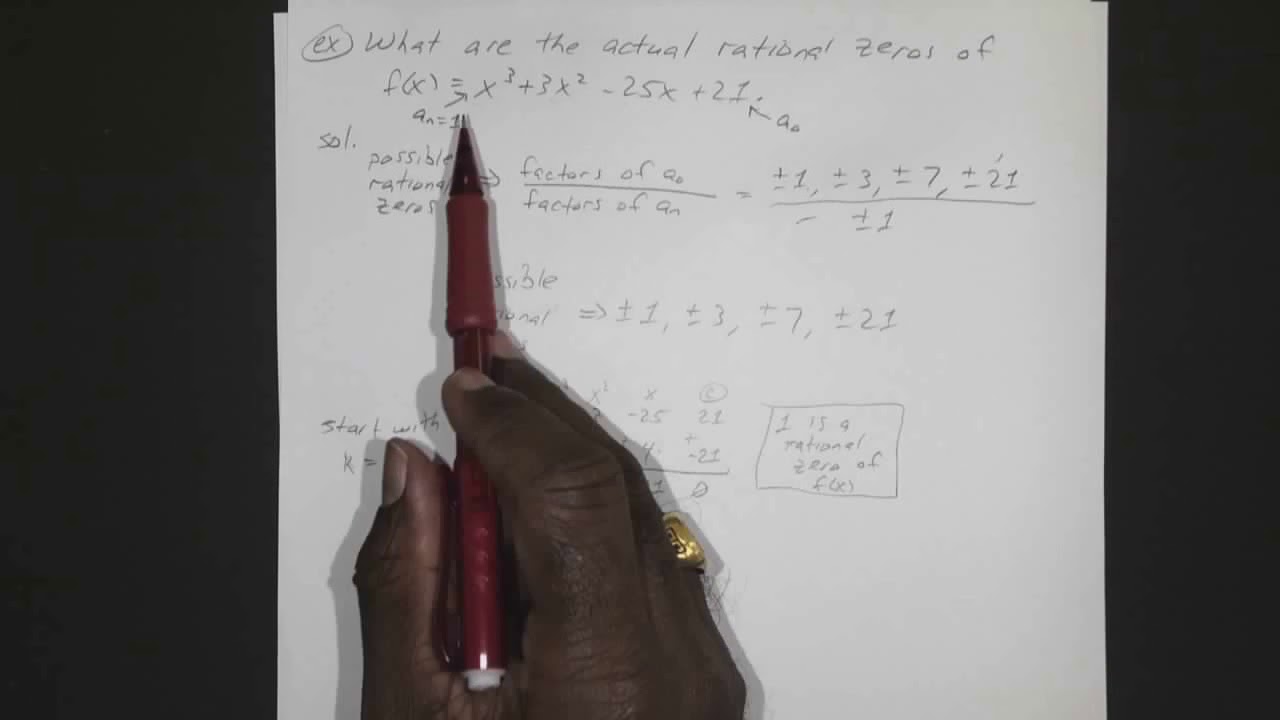 ex What are the actual rational zeros of
f(x) = x³ + 3x² - 25x + 21.
aₙ = 1
a₀
sol.
possible
rational
zeros
⇒ factors of a₀ / factors of aₙ = ±1, ±3, ±7, ±21 / ±1
⇒ ±1, ±3, ±7, ±21
x² x c
start with
-25 21
k =
4 + -21
0
1 is a
rational
zero of
f(x)